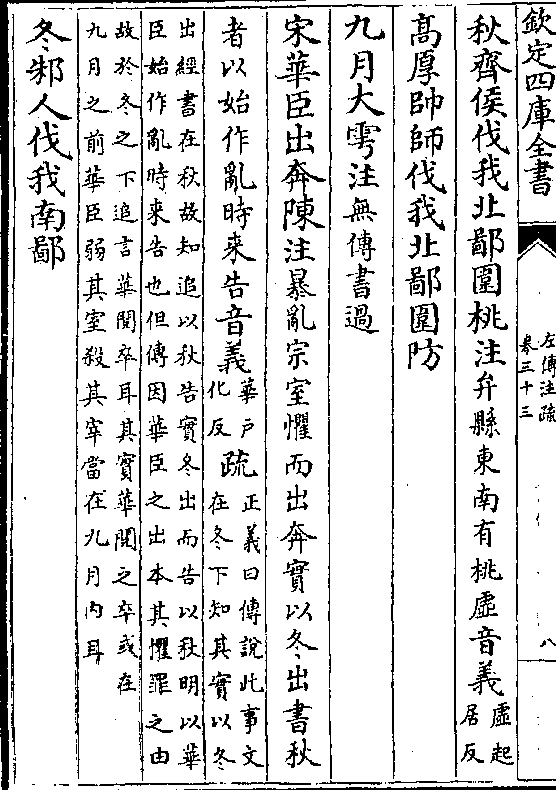 欽定四庫全書
左傳注疏
卷三十三
八
秋齊侯伐我北鄙圍桃注弁縣東南有桃虛音義虛起
居反
高厚帥師伐我北鄙圍防
九月大雩注無傳書過
宋華臣出奔陳注暴亂宗室懼而出奔實以冬出書秋
者以始作亂時來告音義華戶
化反疏正義曰傳說此事文
在冬下知其實以冬
出經書在秋故知追以秋告實冬出而告以秋明以華
臣始作亂時來告也但傳因華臣之出本其懼罪之由
故於冬之下追言華閱卒耳其實華閱之卒或在
九月之前華臣弱其室殺其宰當在九月內耳
冬邾人伐我南鄙